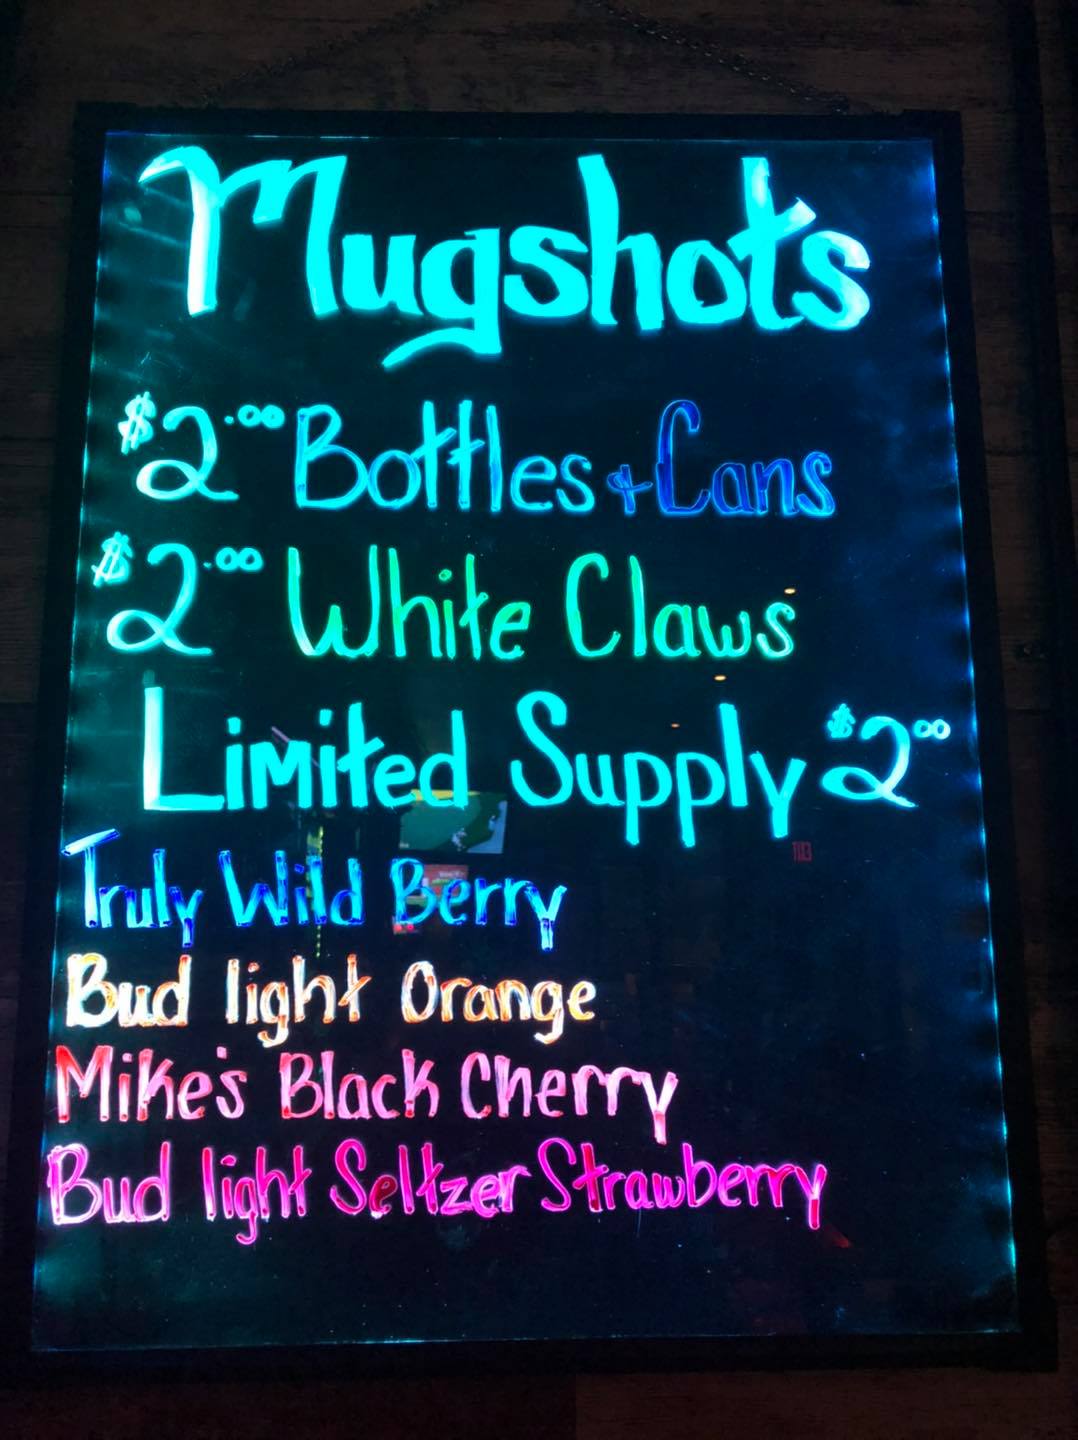 Mugshots
$2.00 Bottles & Cans
$2.00 White Claws
Limited Supply $2.00
Truly Wild Berry
Bud light Orange
Mike's Black Cherry
Bud light Seltzer Strawberry